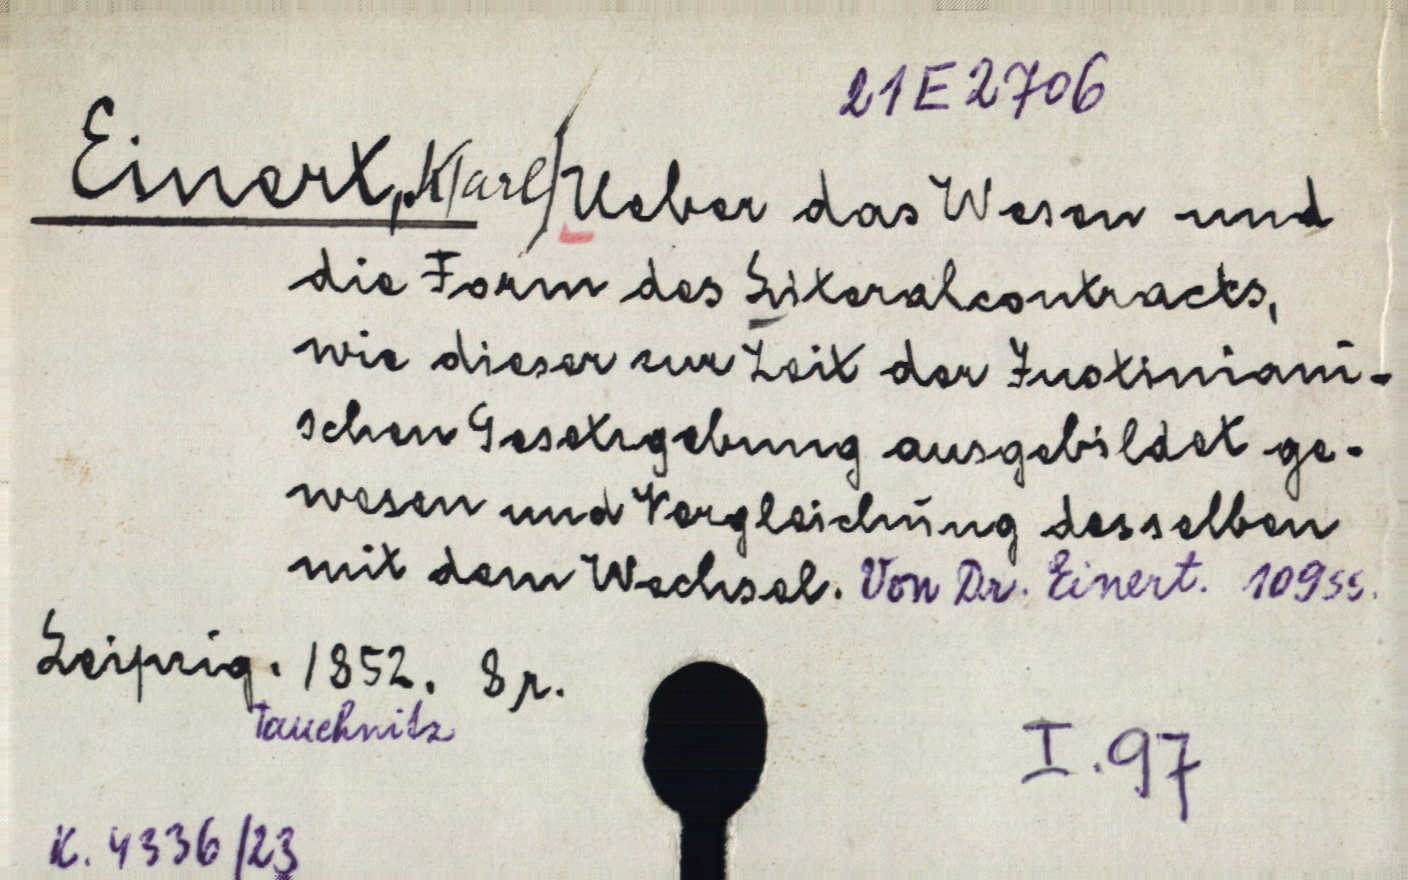 21E2706
Einert, K/arl/ Ueber das Wesen und
die Form des Literalcontracts,
wie dieser zur Zeit der Justiniani-
schen Gesetzgebung ausgebildet ge-
wesen und Vergleichung desselben
mit dem Wechsel. Von Dr. Einert. 109ss.
Leipzig. 1852. 8r.
Tauchnitz
I.97
K. 4336/23